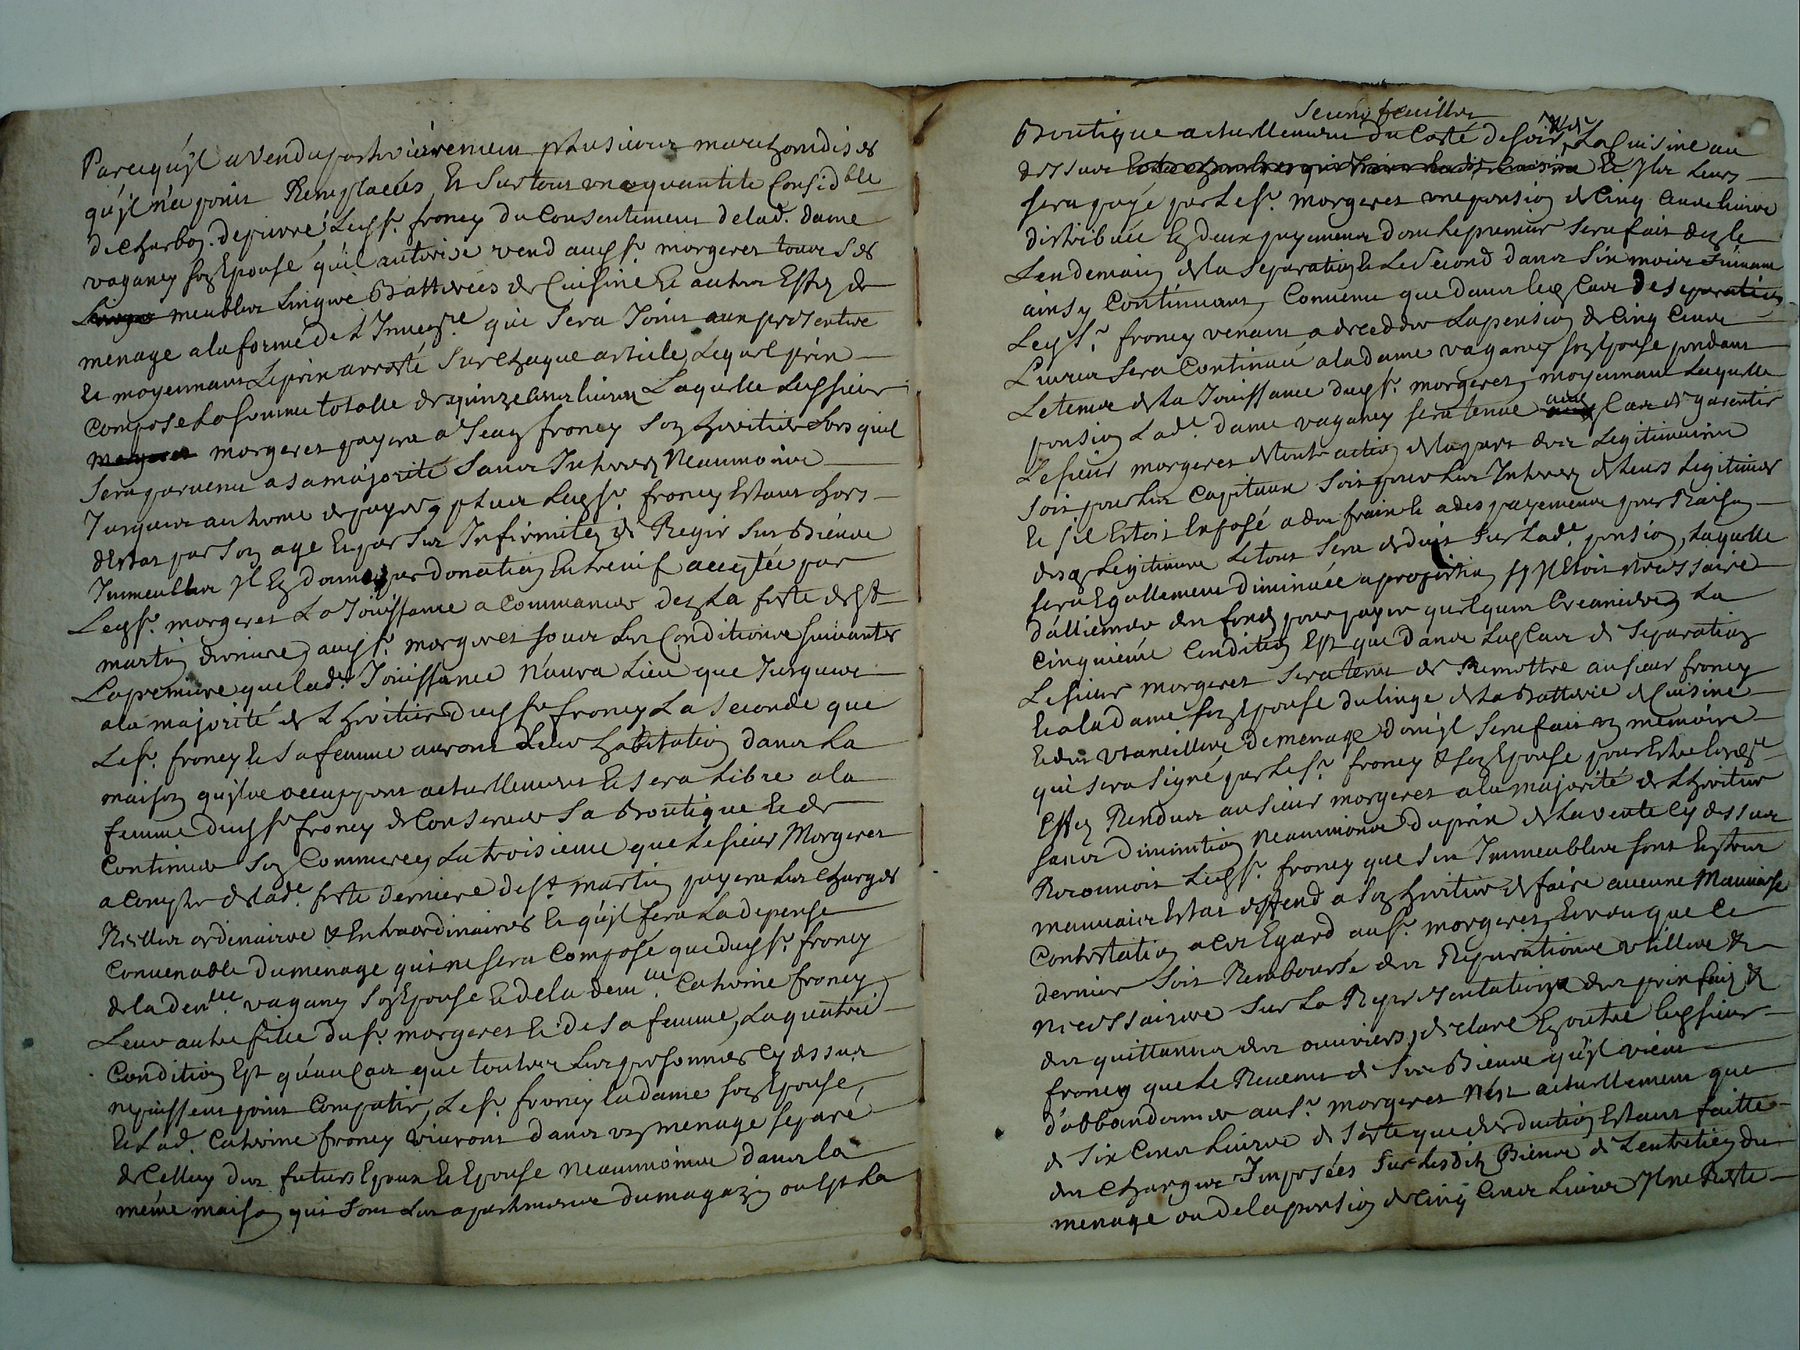 Parcequ'jl a vendu postérieurement plusieurs marchandises
qu'jl n'a point Remplacées Et Surtout une quantité Considble
de charbon de pierre Ledsr. froncy du Consentement de lad. dame
vaganey son Epouse qu'il autorise vend audsr. morgeret tous Ses
meubles Linges Batteries de Cuisine Et autres Effets de
menage a la forme de L'Inventre qui Sera Joint aux presentes
Et moyennant Le prix arresté Sur chaque article Lequel prix
Compose La Somme totalle de quinze cent livres Laquelle Ledsieur
morgeret payera a Jean froncy Son heritier Lors quil
Sera parvenu a Sa majorité Sans Interets Neanmoins
Jusques au terme de payer plus Ledsr. froncy Estant hors
d'Estat par Son age Et par Ses Infirmités de Regir Ses Biens
Immeubles jl En donne par donation Entrevif acceptée par
Ledsr. morgeret La Jouissance a Commancer dez La feste de st
martin derniere audsr. morgeret sous Les Conditions suivantes
La premiere que lade. Jouissance N'aura Lieu que Jusques
a la majorité de L'heritier dudsr froncy La Seconde que
Le sr. froncy Et Sa femme auront Leur habitation dans La
maison qu'jls occuppent actuellement Et Sera Libre a la
femme dudsr froncy de Conserver Sa Boutique Et de
Continuer Son Commerce, La troisieme que Le sieur Morgeret
a Compter de lade. feste derniere de st martin payera Les charges
Réelles ordinaires & Extraordinaires Et qu'jl fera La depense
Convenable du menage qui ne sera Composé que dudsr. froncy
de la demlle. vagany Son Epouse Et de la demlle. Catherine froncy
Leur autre fille du sr. morgeret Et de Sa femme, La quatrie
Condition Est qu'au Cas que toutes Les personnes Cy dessus
ne puissent point Compatir, Le sr. froncy la dame Son Epouse,
Et Lad. Catherine froncy vivront dans un menage separé
de Celluy des futurs Epoux Et Epouse Neanmoins dans la
méme maison qui Sont Les apartements du magazin ou Est La
Second feuillet
Boutique actuellement du Costé de soir & de La Cuisine au
dessus Et jls Leurs
sera payé par Le sr. morgeret une pension de Cinq Cent livres
distribuée En deux payements dont Le premier Sera fait dez le
Lendemain de la Separation Et Le Second dans Six mois Suivant
ainsy Continuant, Convenu que dans led Cas de separation
Led Sr. froncy venant a decedder La pension de Cinq Cents
Livres Sera Continuée a la dame vaganey son Epouse pendant
Le temps de La Jouissance dudsr. morgeret, moyennant Laquelle
pension Lade. dame vaganey sera tenue aud. Cas de garentir
Le sieur morgeret de toute action de la part des Legitimaires
Soit pour Les Capitaux Soit pour Les Interets de Leurs Legitimes
Et s'il Estoit Exposé a des frais Et a des payements pour Raison
desd Legitimes Le tout Sera deduit Sur Lade. pension, Laquelle
sera Egallement diminuée a proportion s'jl Etoit Necessaire
d'alliener des fonds pour payer quelques Creanciers, La
Cinquieme Condition Est que dans Led Cas de Separation
Le sieur morgeret Sera tenu de Remettre au sieur froncy
Et a la dame Son Epouse du linge de La Batterie de Cuisine
Et des Ustancilles de menage dont jl Sera fait un memoire
qui sera signé par Le sr. froncy & Son Epouse pour Estre lesd
Effets Rendus au sieur morgeret a la majorité de L'heritier
sans diminution Neanmoins du prix de La vente Cy dessus
Reconnoit Ledsr. froncy que Ses Immeubles sont En tres
mauvais Estat deffend a Son heritier de faire aucune Mauvaise
Contestation a cet Egard au sr. morgeret, Et veu que Ce
dernier Soit Rembourse des Reparations utilles &
necessaires Sur La Representation des prix fait &
des quittances des ouvriers, declare En outre Ledsieur
froncy que Le Revenu de Ses Biens qu'jl vient
d'abbandonner au sr. morgeret N'est actuellement que
de Six Cent Livres de Sorte que deduction Estant faitte
des Charges Imposées Sur Lesdits Biens de L'entretien du
menage ou de la pension de Cinq Cent Livres jl ne Reste